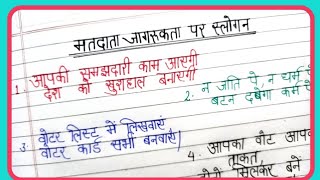 मतदाता जागरूकता पर स्लोगन
1. आपकी समझदारी काम आएगी
देश को खुशहाल बनाएगी
2. न जाति पे न धर्म
बटन दबेगा कर्म
3. वोटर लिस्ट में लिखवाएं
वोटर कार्ड सभी बनवाएं।
4. आपका वोट
ताकत,
मिलकर बनें